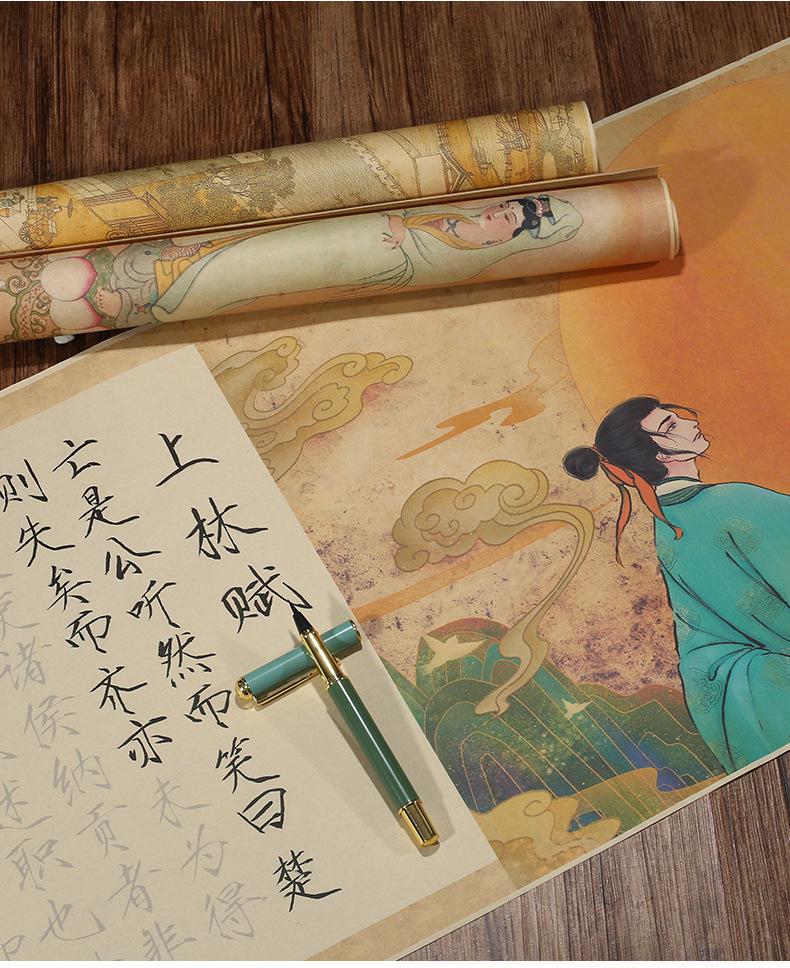 上林赋
亡是公听然而笑曰楚
则失矣而齐亦未为得
使诸侯纳贡者非
述职也